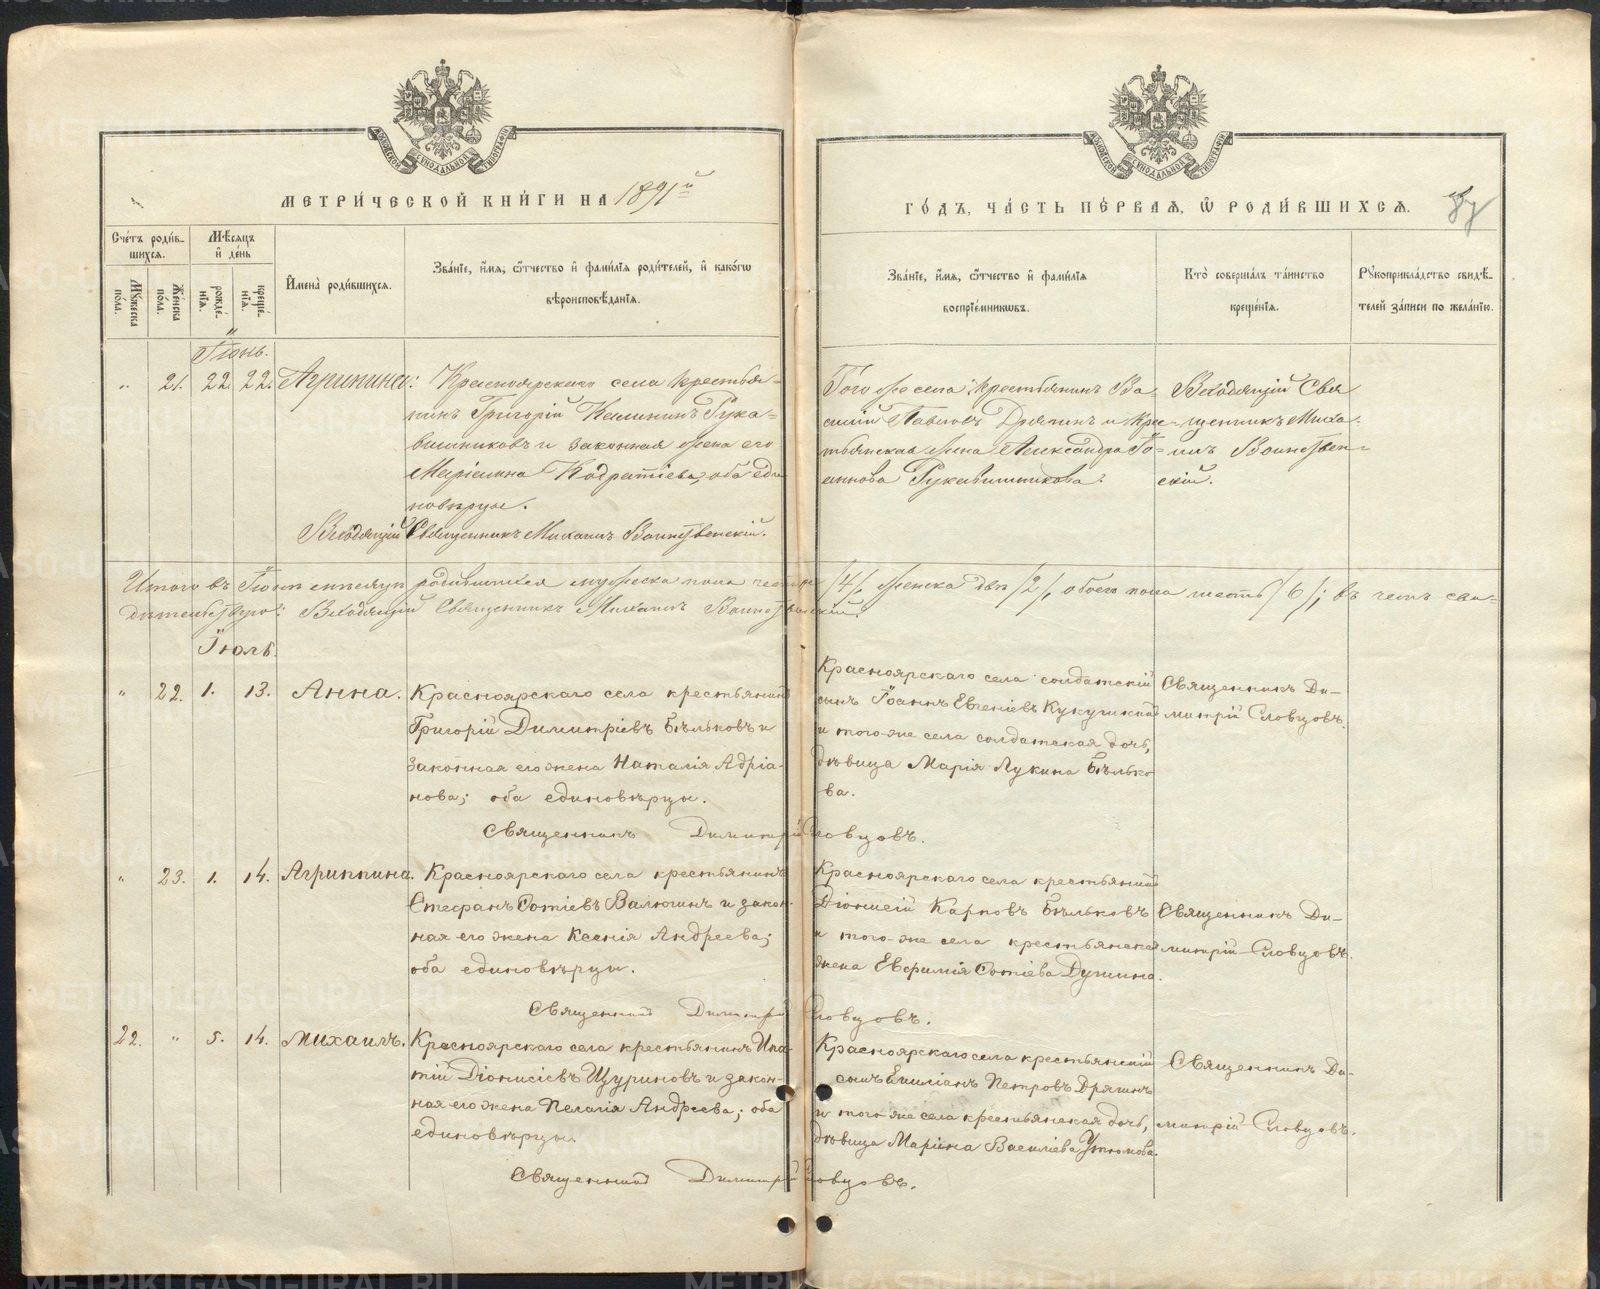 МЕТРИ́ЧЕСКОЙ КНИ́ГИ НА 1891й
ГО́ДЪ, ЧА́СТЬ ПЕ́РВАЯ, Ѽ РОДИ́ВШИХСЯ.
Сче́тъ роди́в-
шихся.
Мѣ́сяцъ
и҆ де́нь
Мꙋ́жеска
по́ла.
Же́нска
по́ла.
рожде́-
нїѧ.
креще́-
нїѧ.
И҆мена̀ роди́вшихся.
Зва́нїе, и҆́мѧ, ѻ҆́тчество и҆ фами́лїѧ роди́телей, и҆ како́гѡ
вѣроисповѣ́данїѧ.
Зва́нїе, и҆́мѧ, ѻ҆́тчество и҆ фами́лїѧ
воспрїе́мникѡвъ.
Кто̀ соверша́лъ та́инство
креще́нїѧ.
Рꙋкоприкла́дство свидѣ́-
телей за́писи по жела́нїю.
Іюнь.
" 21. 22. 22. Агрипина: Красноярскаго села крестья-
нинъ Григорій Калининъ Рука-
вишниковъ и законная жена его
Маріанна Кодратіева, оба еди
новѣрцы.
Владящій Священникъ Михаилъ Воинственскій.
Того же села: крестьянинъ Ва-
силій Павловъ Дрягинъ и кре-
стьянская жена Александра Іо-
аннова Рукавишникова.
Священникъ Миха-
илъ Воинствен-
скій.
Итого въ Іюнѣ мѣсяцѣ родившихся мужеска пола четыре /4/, женска двѣ /2/, обоего пола шесть /6/; въ чемъ сви-
дѣтельствую: Священникъ Михаилъ Воинственскій.
Іюль.
" 22. 1. 13. Анна. Красноярскаго села крестьянинъ
Григорій Димитріевъ Бѣльковъ и
законная его жена Наталія Адріа-
нова; оба единовѣрцы.
Священникъ Димитрій Словцовъ.
Красноярскаго села солдатскій
сынъ Іоаннъ Евгеніевъ
и того-же села солдатская дочь,
дѣвица Марія Лукина Бѣлько
ва.
Священникъ Ди-
митрій Словцовъ.
" 23. 1. 14. Агриппина. Красноярскаго села крестьянинъ
Стефанъ Фотіевъ Валюгинъ и закон-
ная его жена Ксенія Андреева;
оба единовѣрцы.
Священникъ Димитрій Словцовъ.
Красноярскаго села крестьянинъ
Діонисій Карповъ Бѣльковъ
и того-же села крестьянская
жена Евфимія Фотіева Душина.
Священникъ Ди-
митрій Словцовъ.
22. " 5. 14. Михаилъ. Красноярскаго села крестьянинъ Ипа-
тій Діонисіевъ Щуриновъ и закон-
ная его жена Пелагія Андреева; оба
единовѣрцы.
Священникъ Димитрій Словцовъ.
Красноярскаго села крестьянскій
сынъ Емиліанъ Петровъ Дрягинъ
и того-же села крестьянская дочь,
дѣвица Марина Василіева Утюмова.
Священникъ Ди-
митрій Словцовъ.